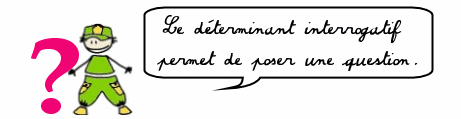 ?
Le déterminant interrogatif
permet de poser une question.